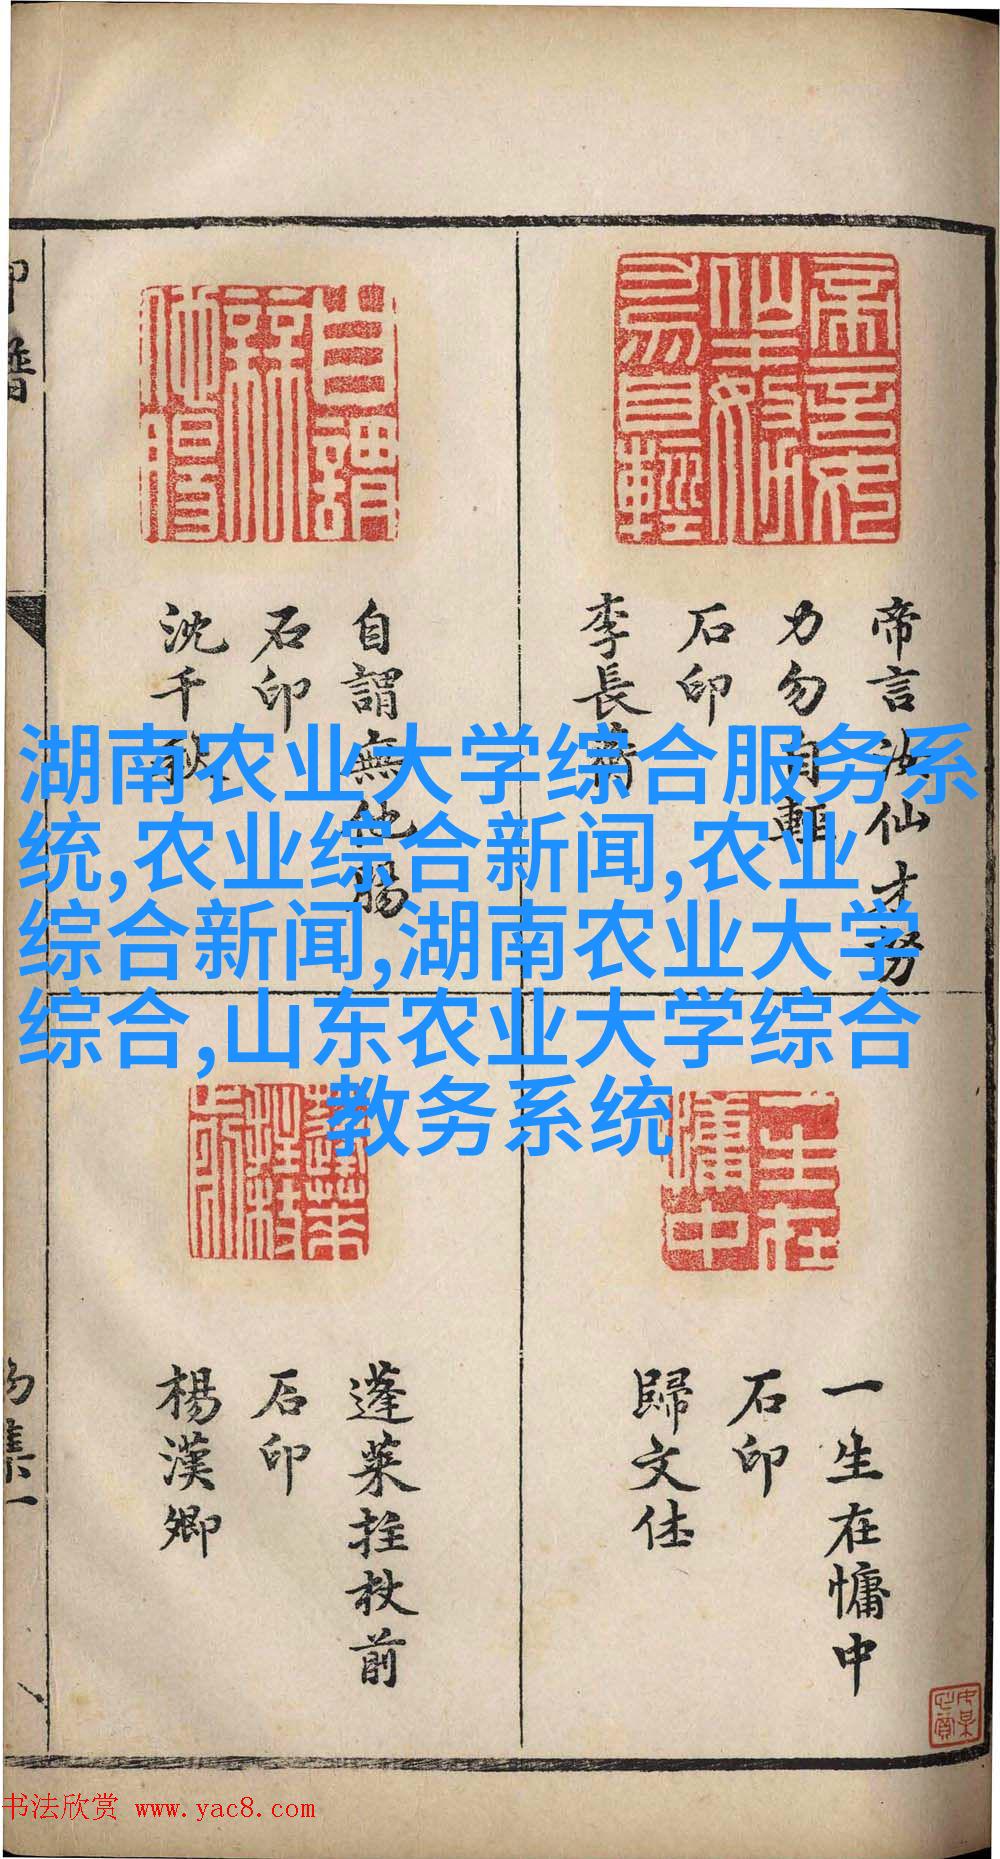 帝言汝仙才努
力勿自輕
石印
李長蘅
自謂無他腸
石印
沈千秋
湖南农业大学综合服务系
统,农业综合新闻,农业
综合新闻,湖南农业大学
综合,山东农业大学综合
教务系统
一生在慵中
石印
歸文休
蓬萊拄杖前
石印
楊漢卿
印譜
初集一
书法欣赏 www.yac8.com